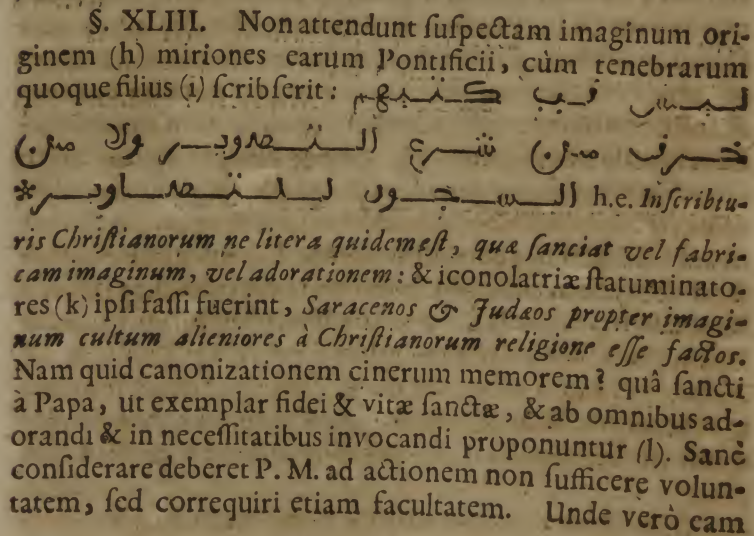 §. XLIII. Non attendunt ſuſpectam imaginum ori-
ginem (h) miriones earum Pontificii, cùm tenebrarum
quoque filius (i) ſcribſerit: ليس في كتبهم
حرف من شرع التصوير ولا من
السجود للتصاوير* h.e. Inſcribtu-
ris Chriſtianorum ne litera quidem eſt, quæ ſanciat vel fabri-
cam imaginum, vel adorationem: & iconolatriæ ſtatuminato-
res (k) ipſi faſſi fuerint, Saracenos & Judæos propter imagi-
num cultum alieniores à Chriſtianorum religione eſſe factos.
Nam quid canonizationem cinerum memorem? quâ ſancti
à Papa, ut exemplar fidei & vitæ ſanctæ, & ab omnibus ad-
orandi & in neceſſitatibus invocandi proponuntur (l). Sanè
conſiderare deberet P. M. ad actionem non ſufficere volun-
tatem, ſed correquiri etiam facultatem. Unde verò eam